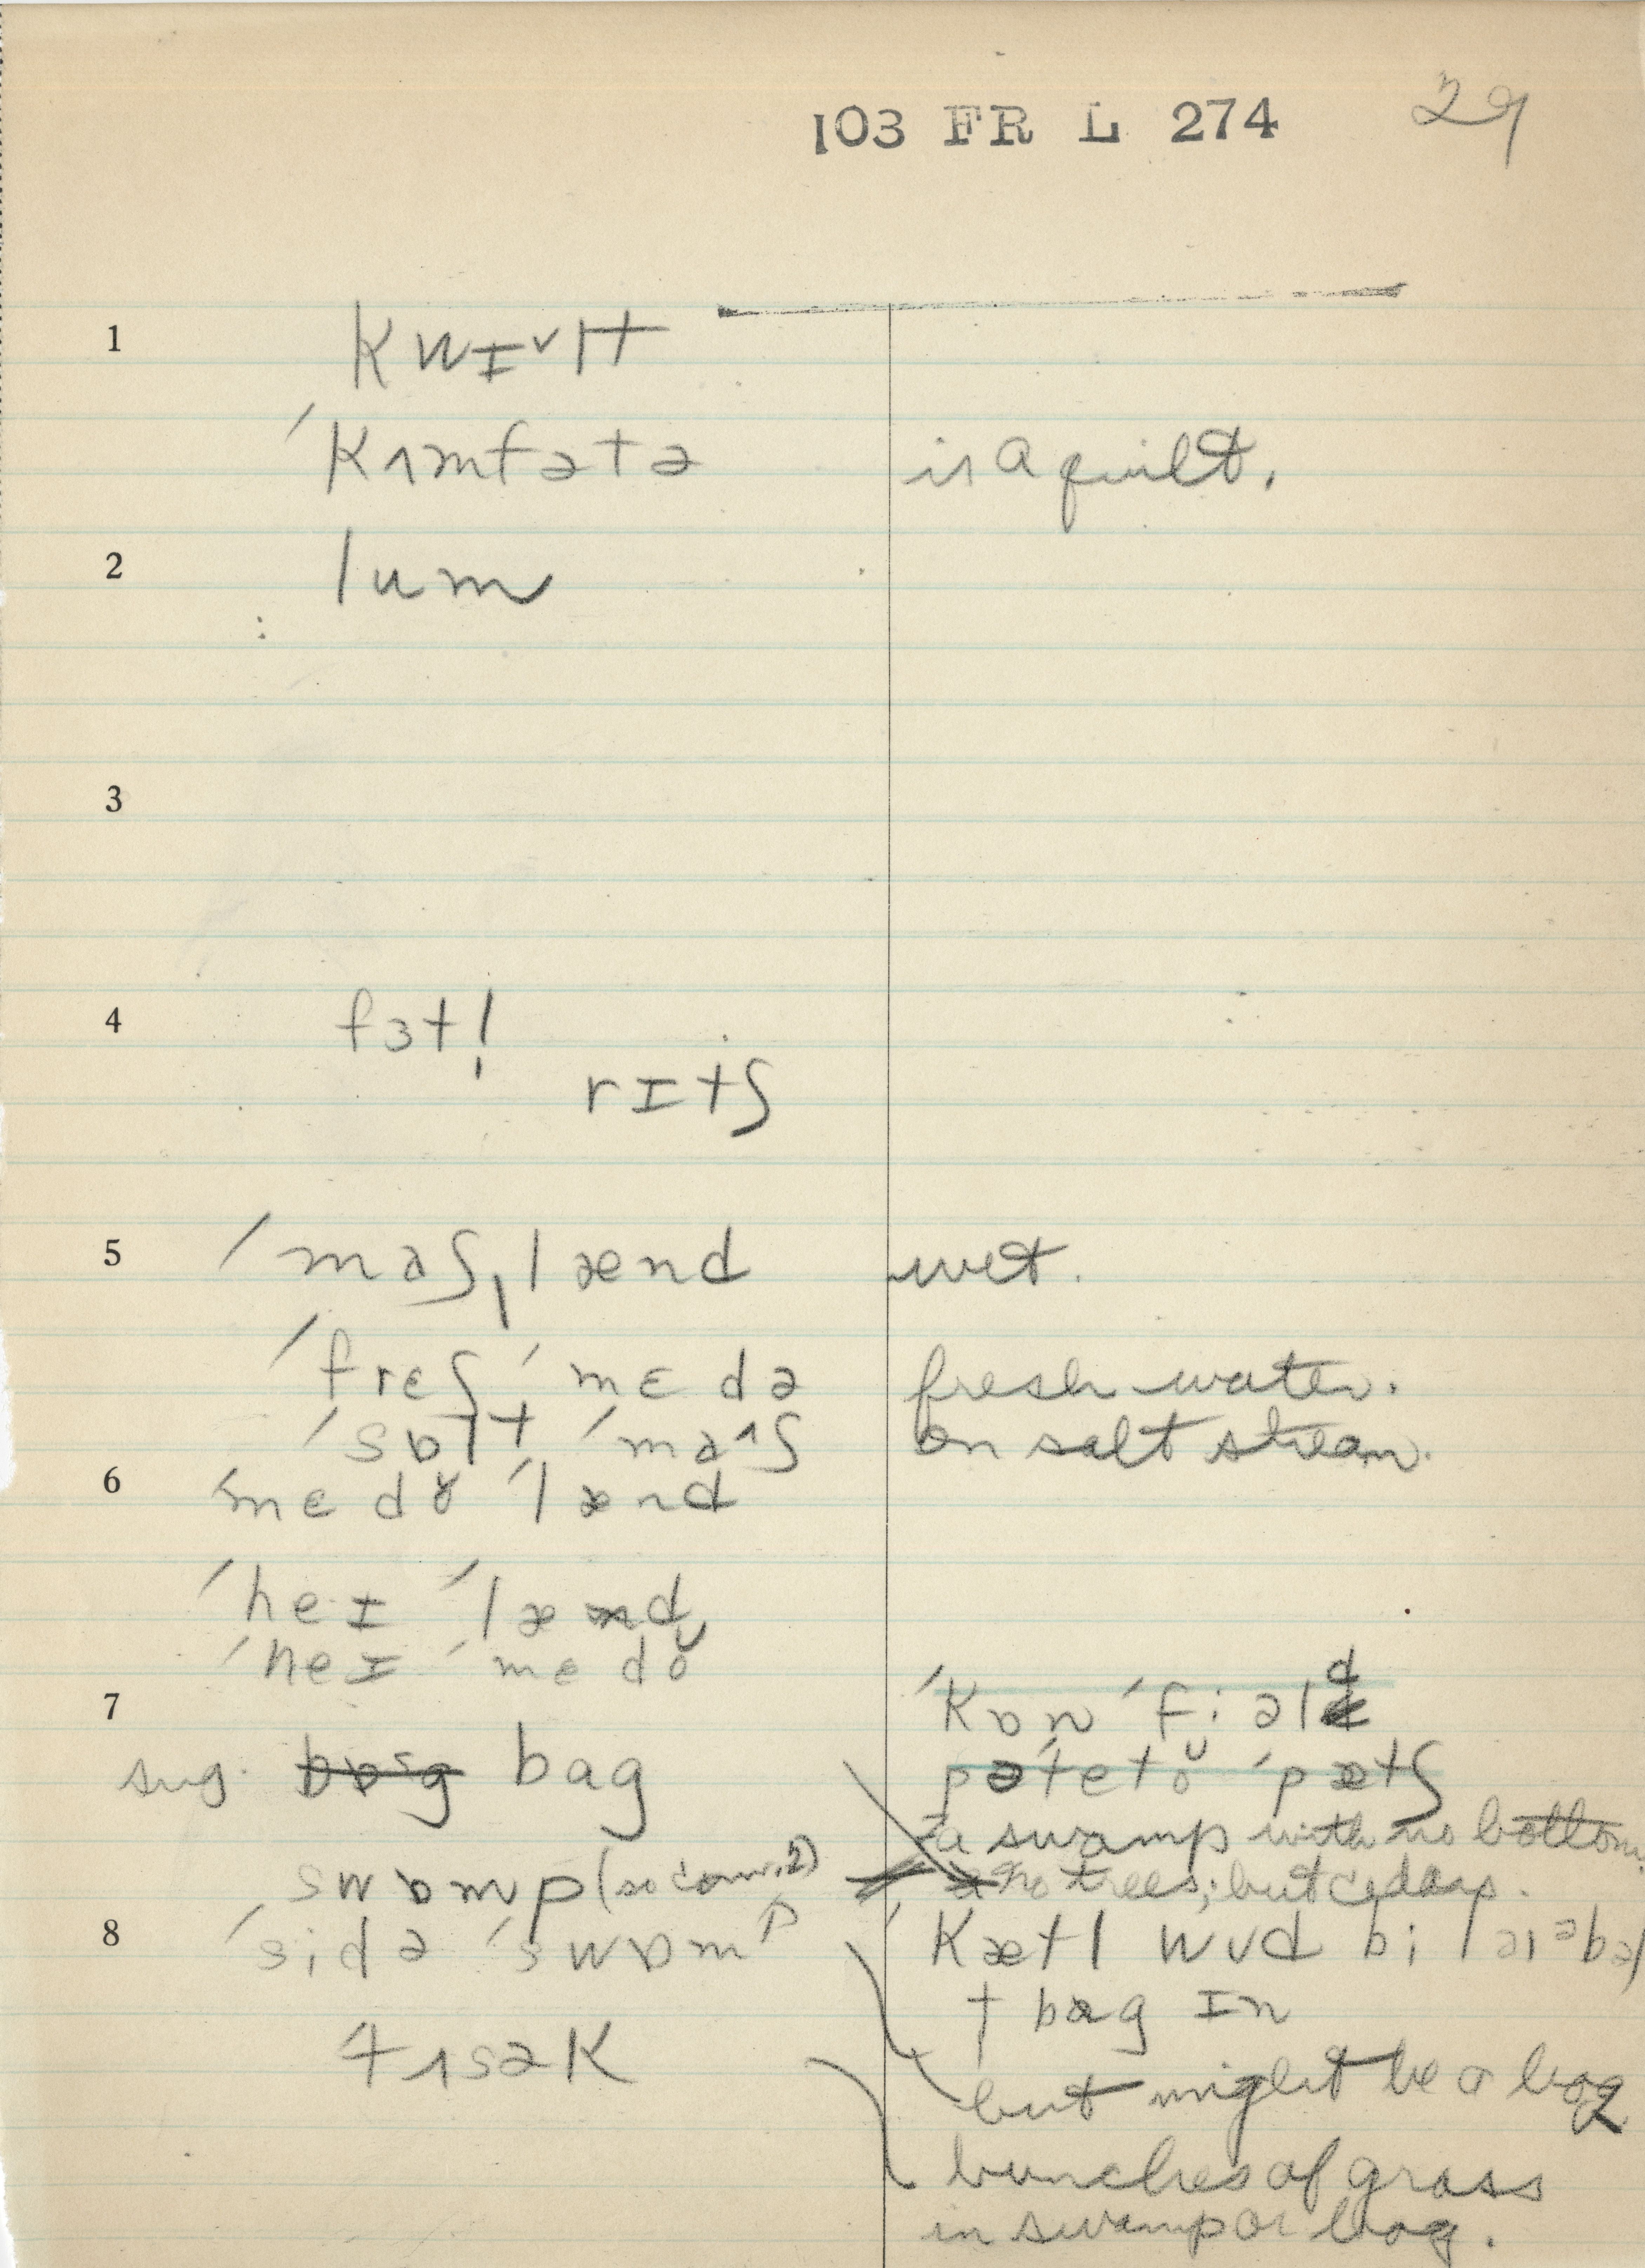 103 FR L 274 29
1 kwɪ˅lt
ˈkʌmfətə is a quilt.
2 lum
3
4 fɜtl̩
rɪtʃ
5 ˈmaʃˌlænd wet.
ˈfrɛʃ ˈmɛdə fresh water.
ˈsɒlt ˈmaʌʃ on salt stream.
6 ˈmɛdɤ ˈlænd
ˈheɪ ˈlænd
ˈheɪ ˈmɛdoᴗ
7 ˈkɒn ˈfiəld
pəˈtetoᴗ ˈpætʃ
sug. bag
= a swamp with no bottom.
swɒmp (so conv. 2) no trees; but cedars.
8 ˈsidə ˈswɒmp ˈkætl wʊd bi laɪəbəl
t bag ɪn
tʌsək
but might be a bog
bunches of grass
in swamp or bog.